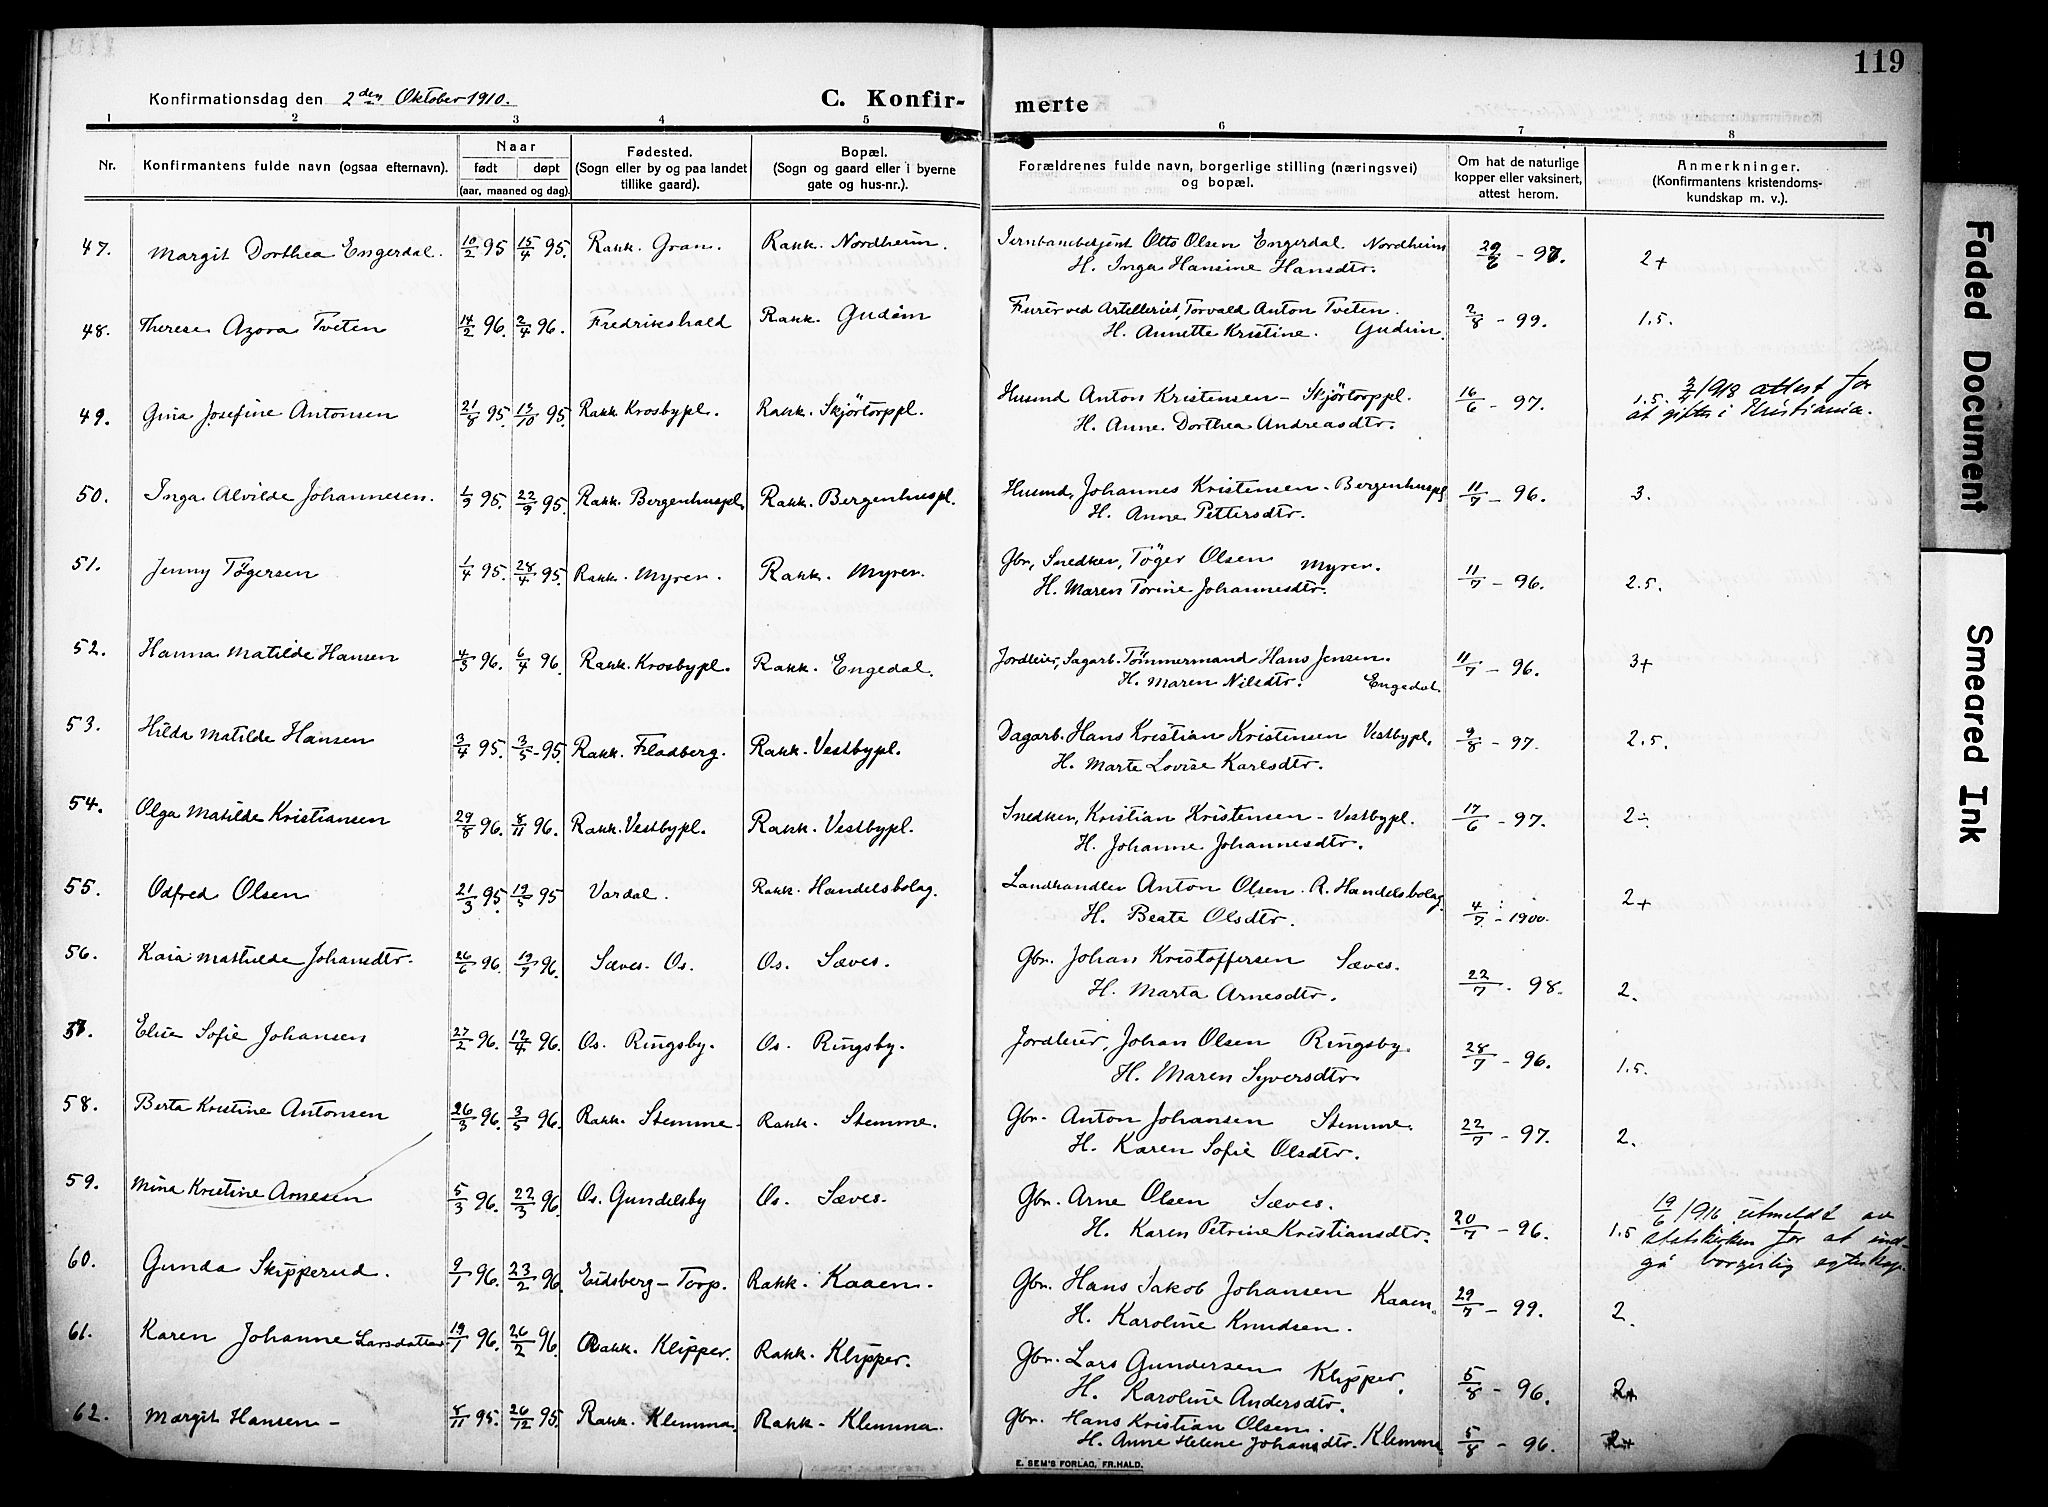 119
Konfirmationsdag den 2den Oktober 1910.
C. Konfirmerte
1 2 3 4 5 6 7 8
Nr.
Konfirmantens fulde navn (ogsaa efternavn).
Naar
født døpt
(aar, maaned og dag).
Fødested.
(Sogn eller by og paa landet
tillike gaard).
Bopæl.
(Sogn og gaard eller i byerne
gate og hus-nr.).
Forældrenes fulde navn, borgerlige stilling (næringsvei)
og bopæl.
Om hat de naturlige
kopper eller vaksinert,
attest herom.
Anmerkninger.
(Konfirmantens kristendoms-
kundskap m. v.).
47. Margit Dorthea Engerdal. 10/2 95 15/4 95. Rakk. Gran. Rakk. Nordheim. Jernbanebetjent Otto Olsen Engerdal. Nordheim 29/6 - 97. 2+
H. Inga Hansine Hansdtr.
48. Therese Azora Tveten 14/2 96. 2/4 96. Fredrikshald Rakk. Gudim Furer ved Artilleriet, Torvald Anton Tveten. 2/8 - 99. 1.5.
H. Annette Kristine. Gudim.
49. Gina Josefine Antonsen 21/8 95. 13/10 95. Rakk Krosbypl. Rakk. Skjörtorppl. Husmd Anton Kristensen - Skjörtorppl. 16/6 - 97. 1.5. 3/4 1918 attest for
H. Anne Dorthea Andreasdtr. at giftes i Kristiania.
50. Inga Alvilde Johannesen. 1/3 95. 22/9 95. Rakk. Bergenhuspl. Rakk. Bergenhuspl. Husmd, Johannes Kristensen - Bergenhuspl 11/7 - 96. 3.
H. Anne Pettersdtr.
51. Jenny Tögersen 1/4 95. 28/4 95. Rakk. Myren. Rakk. Myren. Gbr, Snedker, Töger Olsen Myren. 11/7 - 96. 2.5.
H. Maren Torine Johannesdtr.
52. Hanna Matilde Hansen 4/3 96. 6/4 96 Rakk. Krosbypl. Rakk. Engedal. Jordleier, Sagarb. Tömmermand Hans Jensen. 11/7 - 96. 3+
H. Maren Nilsdtr. Engedal.
53. Hilda Matilde Hansen 3/4 95. 3/5 - 95. Rakk. Fladberg. Rakk. Vestbypl. Dagarb. Hans Kristian Kristensen Vestbypl. 9/8 - 97. 2.5.
H. Marte Lovise Karlsdtr.
54. Olga Matilde Kristiansen 29/8 96. 8/11 96. Rakk. Vestbypl. Rakk. Vestbypl. Snedker, Kristian Kristensen - Vestbypl. 17/6 - 97. 2÷
H. Johanne Johannesdtr.
55. Odfred Olsen 21/3 95. 19/5 95 Vardal. Rakk. Handelsbolag. Landhandler Anton Olsen. R. Handelsbolag 4/7 - 1900. 2+
H. Beate Olsdtr.
56. Kaia Mathilde Johansdtr. 26/6 96. 19/7 96. Sæves. Os. Os. Sæves. Gbr. Johan Kristoffersen Sæves. 22/7 - 98. 2.
H. Marta Arnesdtr.
57. Elise Sofie Johansen 27/2 96. 12/4 96. Os. Ringsby. Os. Ringsby. Jordleier, Johan Olsen Ringsby. 28/7 - 96. 1.5.
H. Maren Syversdtr.
58. Berta Kristine Antonsen 26/3 96. 3/5 96. Rakk. Stemme. Rakk. Stemme. Gbr. Anton Johansen Stemme. 22/7 - 97. 2.
H. Karen Sofie Olsdtr.
59. Mina Kristine Arnesen 5/3 96. 22/3 96. Os. Gundelsby Os. Sæves. Gbr. Arne Olsen Sæves. 20/7 - 96. 1.5 19/6 1916 utmeldt av
H. Karen Petrine Kristiansdtr. statskirken for at ind-
gå borgerlig egteskap.
60. Gunda Skipperud. 9/1 96. 23/2 96. Eidsberg - Torp. Rakk. Kaaen. Gbr. Hans Jakob Johansen Kaaen. 29/7 - 99. 2.
H. Karoline Knudsen.
61. Karen Johanne Larsdatter 19/1 96. 26/2 96. Rakk. Klipper. Rakk. Klipper. Gbr. Lars Gundersen Klipper. 5/8 - 96. 2+
H. Karoline Andersdtr.
62. Margit Hansen - 8/11 95. 26/12 95. Rakk. Klemma. Rakk. Klemma. Gbr. Hans Kristian Olsen. 5/8 - 96. 2+
H. Anne Helene Johansdtr. Klemma
E. SEM'S FORLAG, FR.HALD.
Faded Document
Smeared Ink